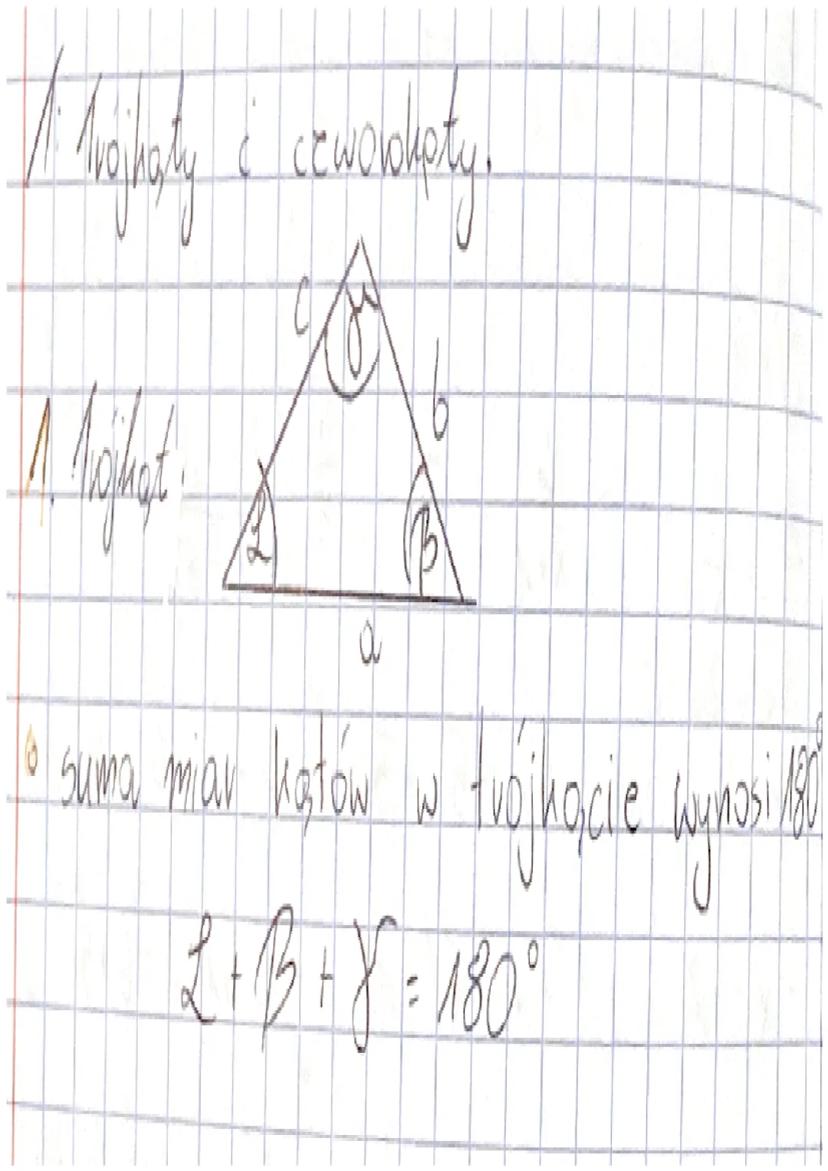 1. Trójkąty i czworokąty.
c
γ
b
1. Trójkąt.
α
β
a
suma miar kątów w trójkącie wynosi 180°
α + β + γ = 180°